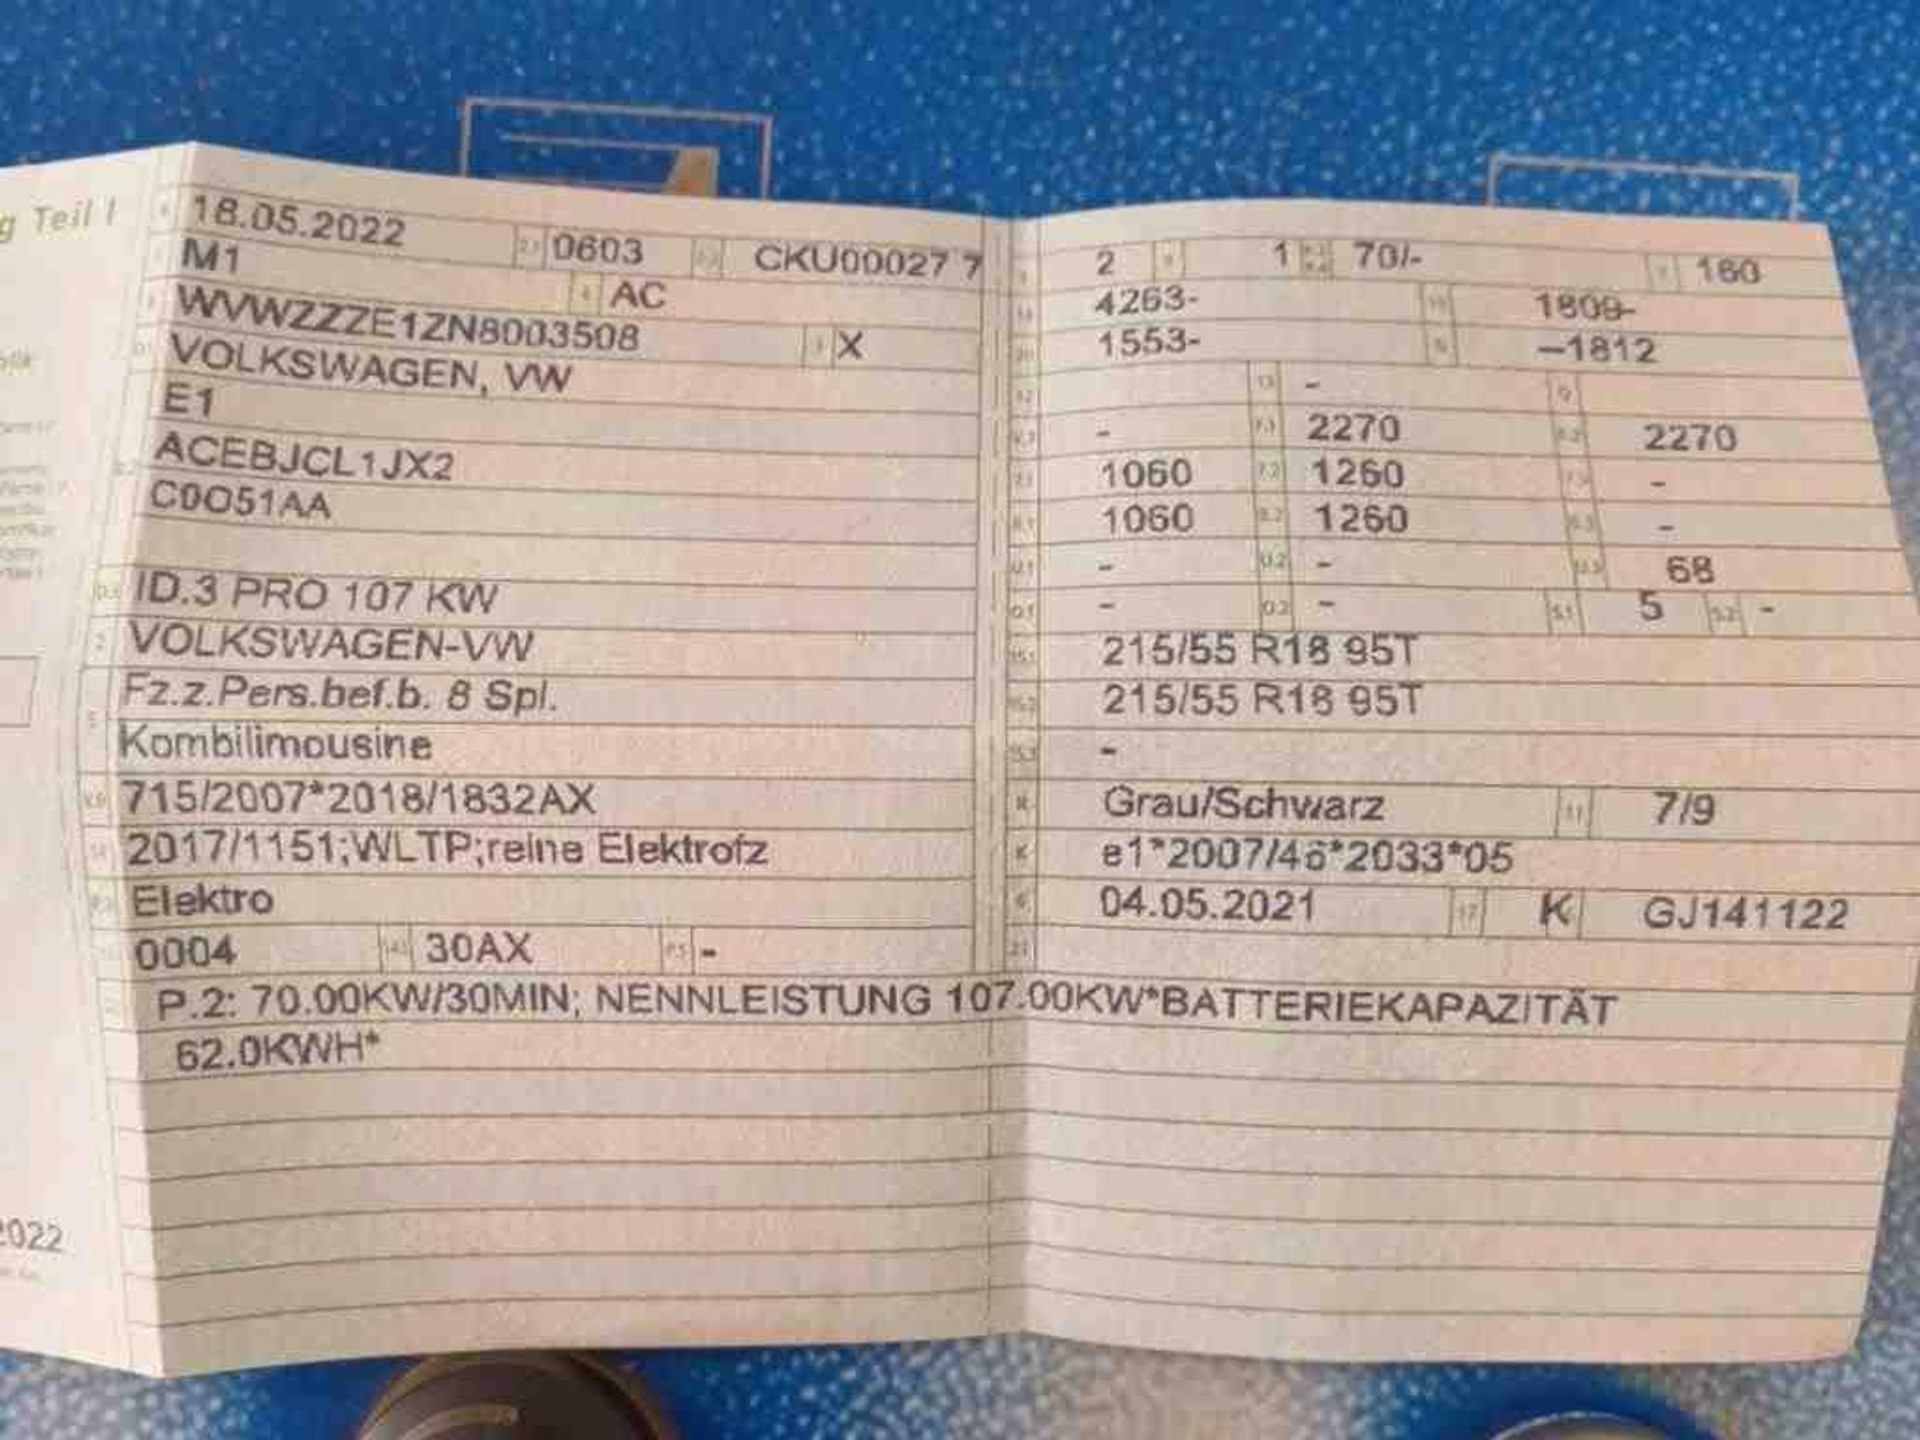 g Teil I
18.05.2022 0603 CKU00027 7
M1 AC
WVWZZZE1ZN8003508 X
VOLKSWAGEN, VW
E1
ACEBJCL1JX2
C0O51AA
ID.3 PRO 107 KW
VOLKSWAGEN-VW
Fz.z.Pers.bef.b. 8 Spl.
Kombilimousine
715/2007*2018/1832AX
2017/1151;WLTP;reine Elektrofz
Elektro
0004 30AX P.5 -
2 1 70/- T 160
4263- 1809-
1553- –1812
13 -
- 7.1 2270 2270
1060 7.2 1260 -
1060 8.2 1260 -
U.1 - U.2 - U.3 68
O.1 - O.2 - S.1 5 S.2 -
15.1 215/55 R18 95T
15.2 215/55 R18 95T
15.3 -
R Grau/Schwarz 11 7/9
K e1*2007/46*2033*05
6 04.05.2021 17 K GJ141122
21
P.2: 70.00KW/30MIN; NENNLEISTUNG 107.00KW*BATTERIEKAPAZITÄT
62.0KWH*
2022